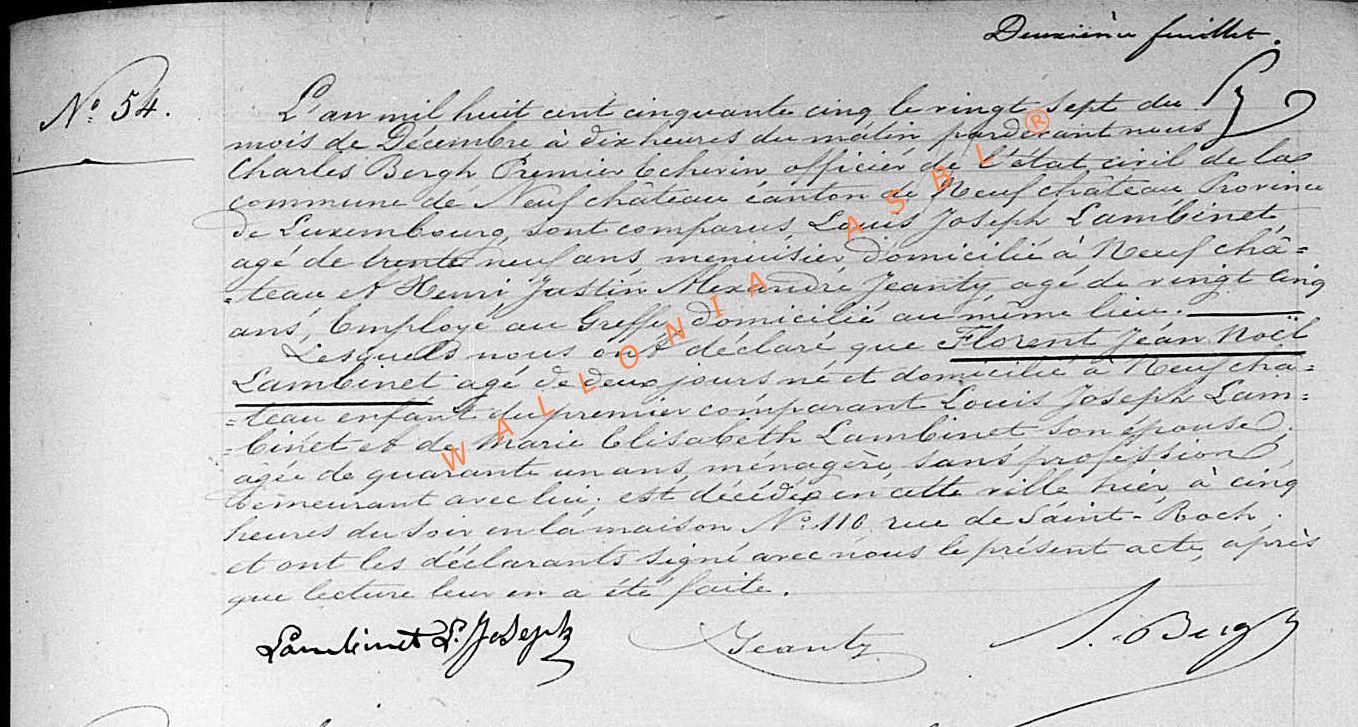 Deuxième feuillet.
N° 54.
L'an mil huit cent cinquante cinq le vingt-sept du
mois de Décembre à dix heures du matin pardevant nous
Charles Bergh Premier Echevin officier de l'état civil de la
commune de Neufchâteau canton de Neufchâteau Province
de Luxembourg, sont comparus Louis Joseph Lambinet,
agé de trente neuf ans menuisier domicilié à Neufchâ=
=teau et Henri Justin Alexandre Jeanty agé de vingt cinq
ans, Employé au Greffe, domicilié au même lieu.
Lesquels nous ont déclaré que Florent Jean Noël
Lambinet agé de deux jours né et domicilié à Neufchâ=
=teau enfant du premier comparant Louis Joseph Lam=
=binet et de Marie Elisabeth Lambinet son épouse,
agée de quarante un ans, ménagère, sans profession
demeurant avec lui, est décédé en cette ville hier, à cinq
heures du soir en la maison N° 110 rue de Saint-Roch.
et ont les déclarants signé avec nous le présent acte, après
que lecture leur en a été faite.
Lambinet L. Joseph
Jeanty
WALLONIA ASBL ®